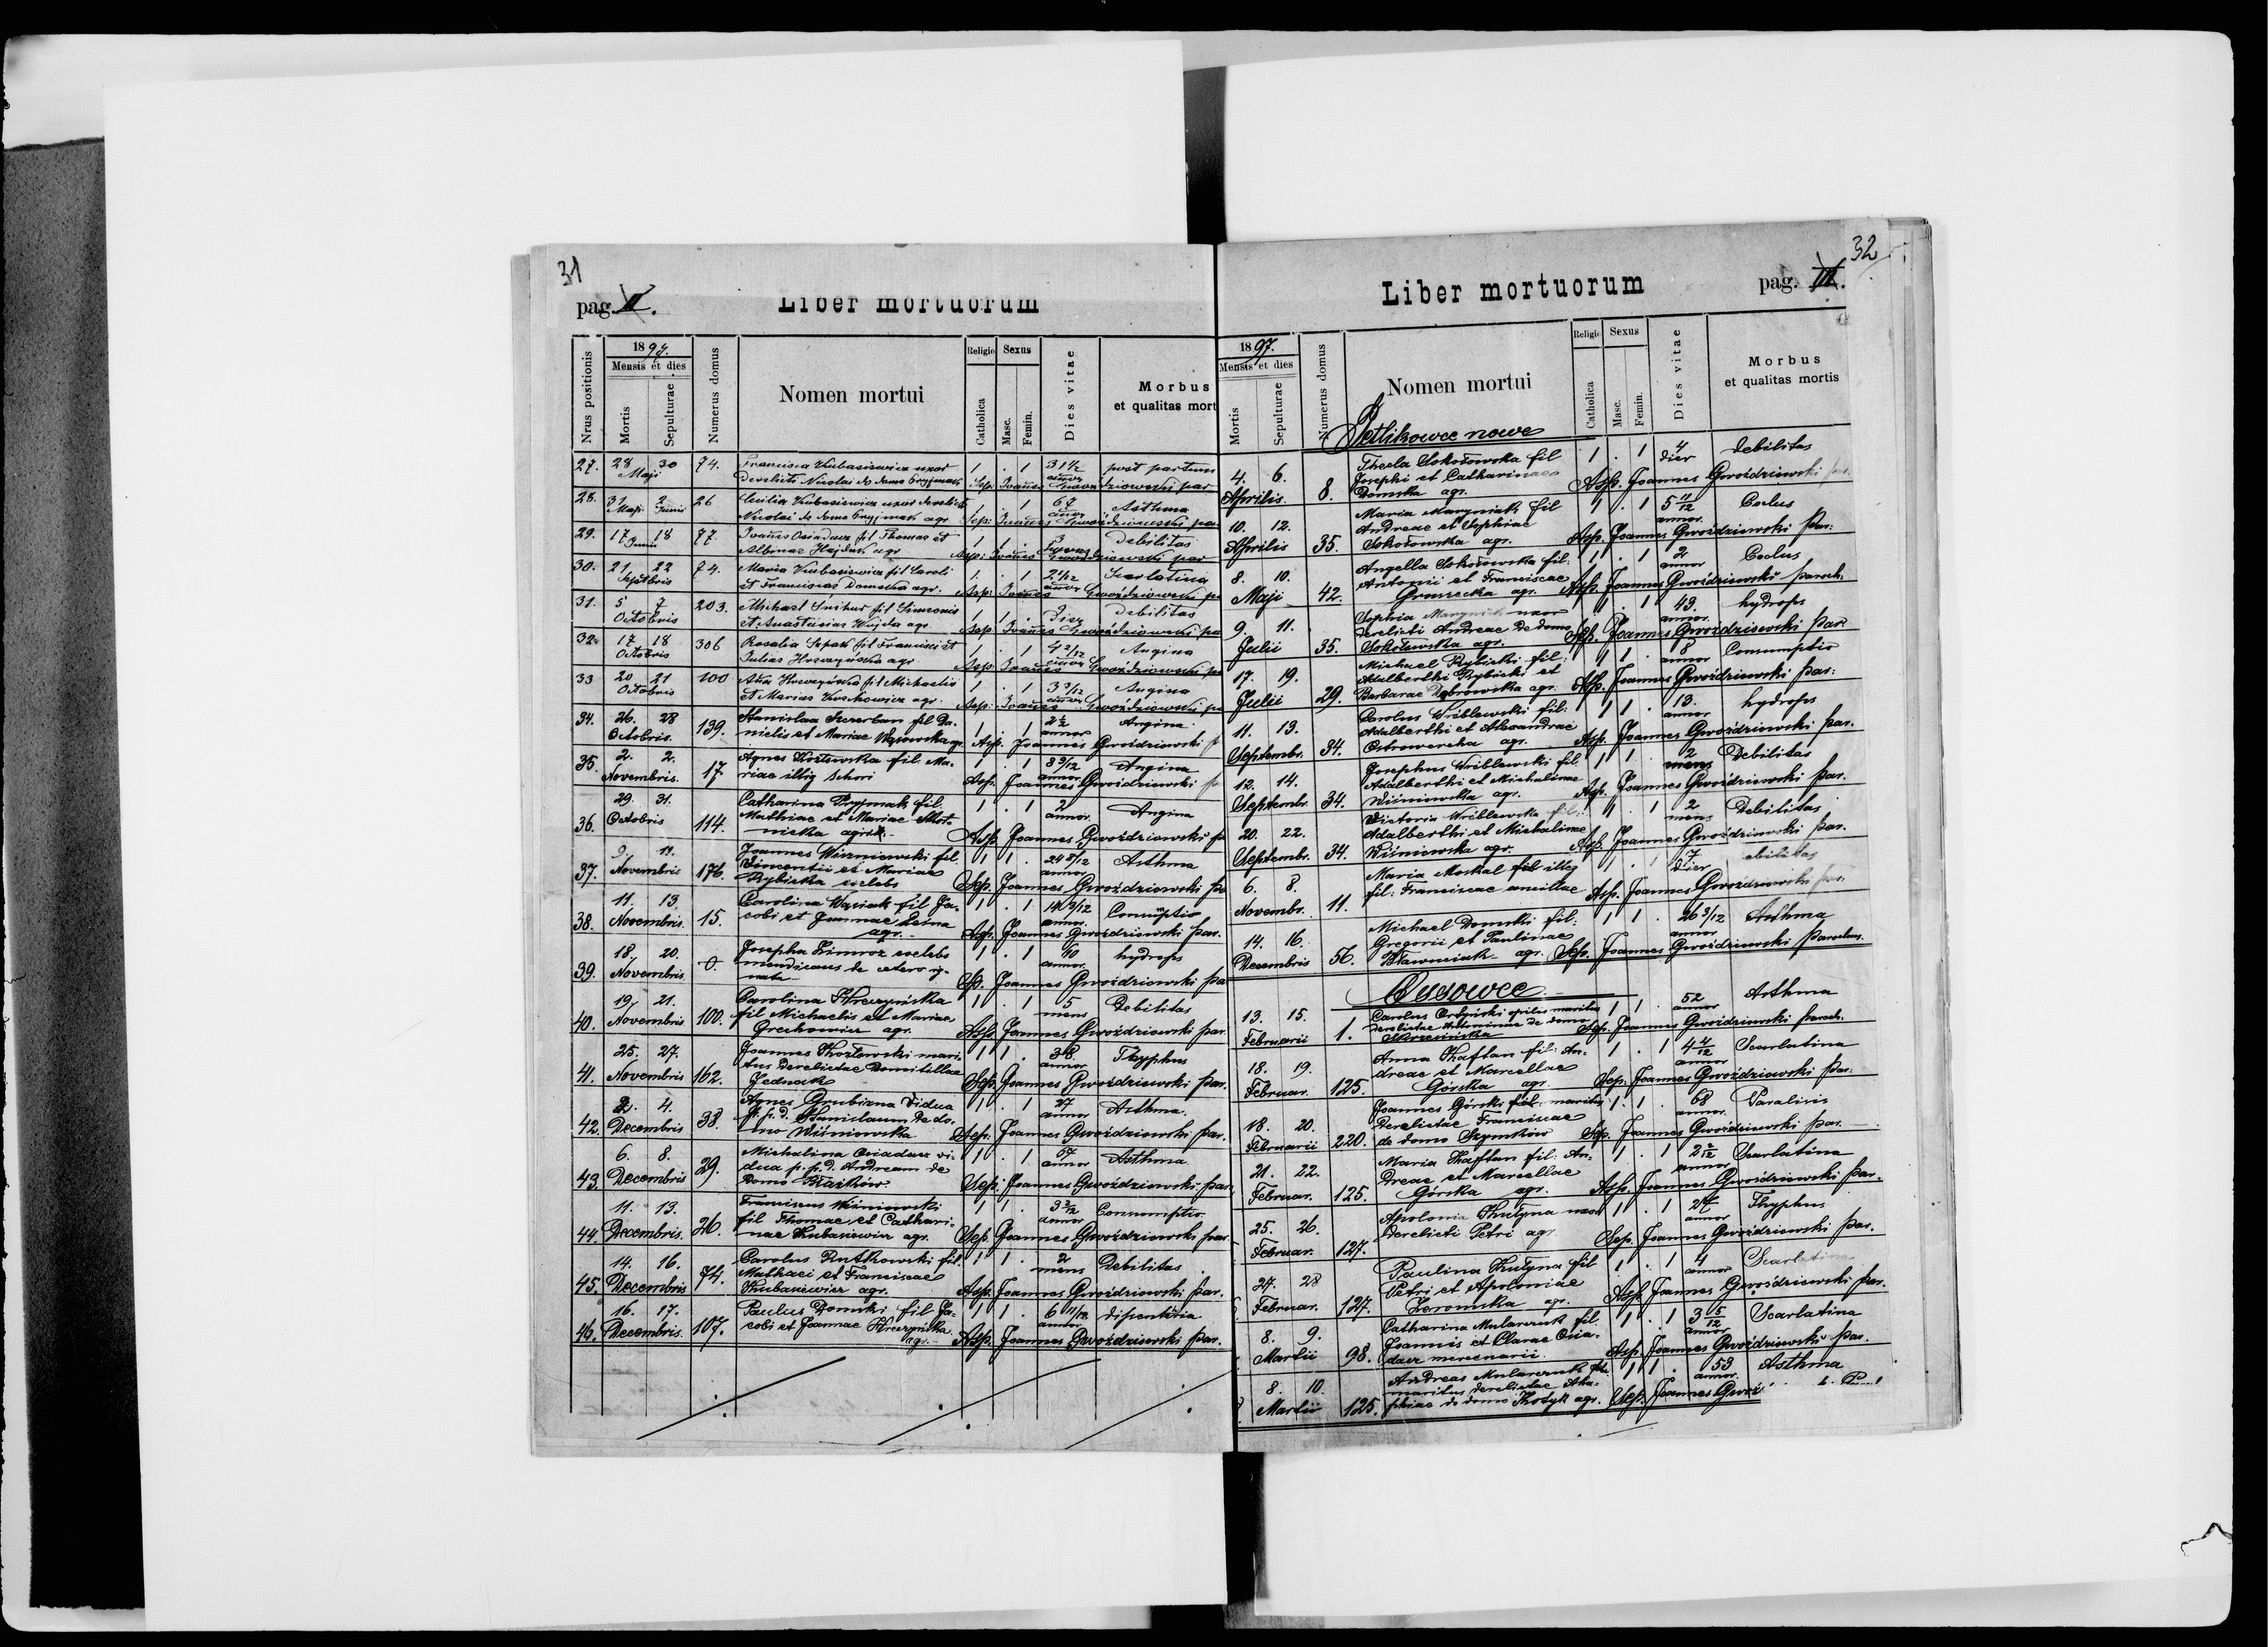 31
pag. II.
Liber mortuorum
Nrus positionis
1897.
Mensis et dies
Mortis
Sepulturae
Numerus domus
Nomen mortui
Religio
Catholica
Sexus
Masc.
Femin.
Dies vitae
Morbus
et qualitas mort
27. 28 30 74. Francisca Kubasiewicz uxor 1 . 1 31 1/2 post partum
Maji derelicti Nicolai de domo Pryjmak annor
28. 31 2 26 Cecilia Kubasiewicz uxor derelicti 1 . 1 67 Asthma
Maji Junii Nicolai de domo Pryjmak agr annor
29. 17 18 77 Joannes Osiadacz fil Thomae et 1 1 . Debilitas
Junii Albinae Hajduk agr
30. 21 22 74. Maria Kubasiewicz fil Caroli 1. . 1 Scarlatina
Septbris et Franciscae Domska agr.
31. 5 7 203. Michael Snihur fil Simeonis 1 1 . Debilitas
Octobris et Anastasiae Wojda agr
32. 17 18 306 Rosalia Sepak fil Francisci et 1 . 1 4 2/12 Angina
Octobris Juliae Hreczyńska agr
33 20 21 100 Anna Hreczyńska fil Michaelis 1 . 1 3 3/12 Angina
Octobris et Mariae agr.
34. 26. 28 139. Stanislaa Szczerban fil Da- 1 . 1 2 1/2 Angina.
Octobris. nielis et Mariae Wąsowska agr. Asp. Joannes Gwoździowski
35. 2. 2. 17 Agnes Kozłowska fil. Ma- 1 . 1 8 9/12 Angina
Novembris. riae illig thori Asp. Joannes Gwoździowski
29. 31. Catharina Pryjmak fil. 1 . 1 2 Angina
36. Octobris 114. Mathiae et Mariae Skot- annor.
nicka agric. Asp Joannes Gwoździowski pa
9. 11. Joannes Wiszniewski fil. 1 1 . 24 8/12 Asthma
37. Novembris 176. Vincentii et Mariae annor
Rybicka coelebs Sep. Joannes Gwoździowski pa
11. 13. Carolina Wąsiak fil Ja- 1 . 1 14 3/12 Consumptio
38. Novembris. 15. cobi et Joannae Leina annor.
agr. Asp. Joannes Gwoździowski par.
18. 20. Josepha Zimroz coelebs 1 . 1 40 hydrops
39. Novembris 0. mendicans de cetero ig- annor
nota Sep. Joannes Gwoździowski pa
19. 21. Carolina Hreczyńska 1 . 1 5 Debilitas
40. Novembris 100. fil Michaelis et Mariae mens
Grechowicz agr. Asp. Joannes Gwoździowski par.
25. 27. Joannes Kozłowski mari- 1 1 . 38. Thyphus
41. Novembris 162. tus derelictae Domitillae annor
Jednak Sep. Joannes Gwoździowski par.
2. 4. Agnes Grubizna Vidua 1 . 1 77 Asthma.
42. Decembris 38. p. p. d. Stanislaum de do- annor
mo Wiśniowska Sep. Joannes Gwoździowski par.
6. 8. Michalina Osiadacz vi- 1 . 1 67 Asthma
43. Decembris 29. dua p. p. d. Andream de annor
domo Błażków Sep. Joannes Gwoździowski par.
11. 13. Franciscus Wiśniowski 1 1 . 3 3/12 Consumptio
44. Decembris. 26. fil Thomae et Cathari- annor
nae Kubasiewicz agr. Sep. Joannes Gwoździowski par.
14. 16. Carolus Rutkowski fil. 1 1 . 2 Debilitas
45. Decembris 74. Mathaei et Franciscae mens
Kubasiewicz agr. Asp. Joannes Gwoździowski par.
16. 17. Paulus Domski fil Ja- 1 1 . 6 11/12 dispenteria
46. Decembris. 107. cobi et Joannae Hreczyńska annor
agr. Asp. Joannes Gwoździowski par.
32
Liber mortuorum
pag. III.
1897.
Mensis et dies
Mortis
Sepulturae
Numerus domus
Nomen mortui
Religio
Catholica
Sexus
Masc.
Femin.
Dies vitae
Morbus
et qualitas mortis
Petlikowce nowe
4. 6. Thecla Sokołowska fil 1 . 1 4 debilitas
Aprilis. 8. Josephi et Catharinae dier
Domska agr. Asp. Joannes Gwoździowski par.
10. 12. Maria Maryniak fil 1 . 1 5 11/12 Coclus
Aprilis 35. Andreae et Sophiae annor.
Sokołowska agr. Asp. Joannes Gwoździowski par:
8. 10. Angella Sokołowska fil: 1 . 1 2 Coclus
Maji 42. Antonii et Franciscae annor
Gronzecka agr. Asp. Joannes Gwoździowski paroch.
9. 11. Sophia Maryniak uxor 1 . 1 43. hydrops
Julii 35. derelicti Andreae de domo annor.
Sokołowska agr. Sep. Joannes Gwoździowski par
17. 19. Michael Rybicki fil: 1 1 . 8 Consumptio
Julii 29. Adalberthi Rybicki et annor
Barbarae Dąbrowska agr. Asp. Joannes Gwoździowski par:
11. 13. Carolus Wriblewski fil: 1 1 . 13. hydrops
Septembr. 34. Adalberthi et Alexandrae annor
Ostrowercha agr. Asp. Joannes Gwoździowski par.
12. 14. Josephus Wriblewski fil 1 1 . 2 Debilitas
Septembr. 34. Adalberthi et Michalinae mens
Wiśniowska agr. Asp. Joannes Gwoździowski par.
20. 22. Victoria Wriblewska fil: 1 . 1 2 Debilitas
Septembr. 34. Adalberthi et Michalinae mens
Wiśniowska agr. Asp. Joannes Gwoździowski par.
6. 8. Maria Moskal fil illeg 1 . 1 7 ebilitas
Novembr. 11. fil: Franciscae ancillae dier
Asp. Joannes Gwoździowski par.
14. 16. Michael Domski fil: 1 1 . 26 3/12 Asthma
Decembris 56. Gregorii et Paulinae annor
Bławuciak agr. Sep. Joannes Gwoździowski parochus.
Cusowce
13. 15. Carolus opilio maritus 1 1 . 52 Asthma
Februarii 1. derelictae de domo annor
Sep. Joannes Gwoździowski paroch.
18. 19. Anna Kaftan fil: An- 1 . 1 4 4/12 Scarlatina
Februar. 125. dreae et Marcellae annor
Górska agr. Sep. Joannes Gwoździowski par.
18. 20. Joannes Górski fil: maritus 1 . 1 . 68 Paralisis
Februarii 220. derelictae Franciscae annor.
de domo Szymków Sep. Joannes Gwoździowski par.
21. 22. Maria Kaftan fil: An- 1 . 1 2 2/12 Scarlatina
Februar. 125. dreae et Marcellae annor
Górska agr. Asp. Joannes Gwoździowski par.
25. 26. Apolonia Kułyna uxor 1 . 1 27 Thyphus
Februar. 127. derelicti Petri agr. annor
Sep. Joannes Gwoździowski par.
27. 28 Paulina Kułyna fil 1 . 1 4 Scarlatina
Februar. 127. Petri et Apoloniae annor
Zeromska agr. Asp. Joannes Gwoździowski par.
8. 9. Catharina Mularczuk fil. 1 . 1 3 5/12 Scarlatina
Martii 98. Joannis et Clarae Osia- annor
dacz mercenarii. Asp. Joannes Gwoździowski par.
8. 10. Andreas Mularczuk fil. 1 1 . 53 Asthma
Martii 125. maritus derelictae Aha- annor.
phiae de domo Kotyk agr. Sep. Joannes Gwoź